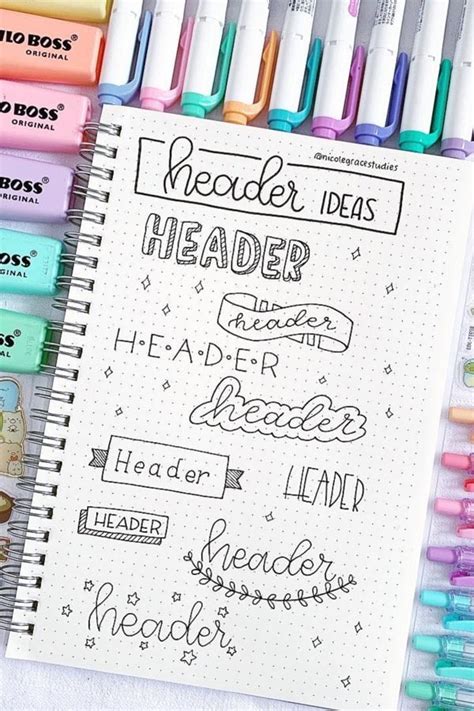 LO BOSS
ORIGINAL
O BOSS
ORIGINAL
BOSS
ORIGINAL
OSS
GINAL
OSS
INAL
@nicolegracestudies
header IDEAS
HEADER
header
H•E•A•D•E•R
header
Header
HEADER
HEADER
header
header